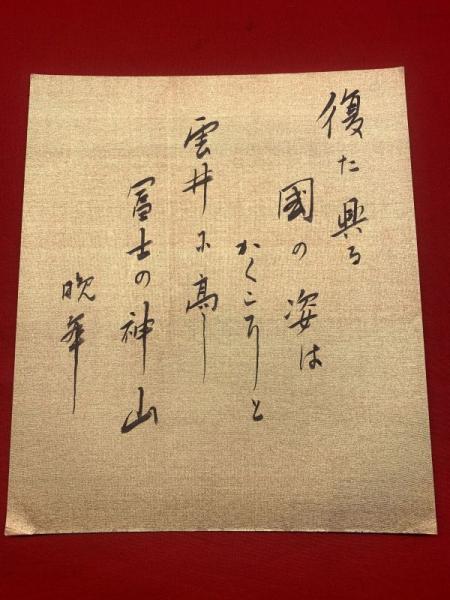 復た興る
國の姿は
かくこりと
雲井に高し
冨士の神山
晩華